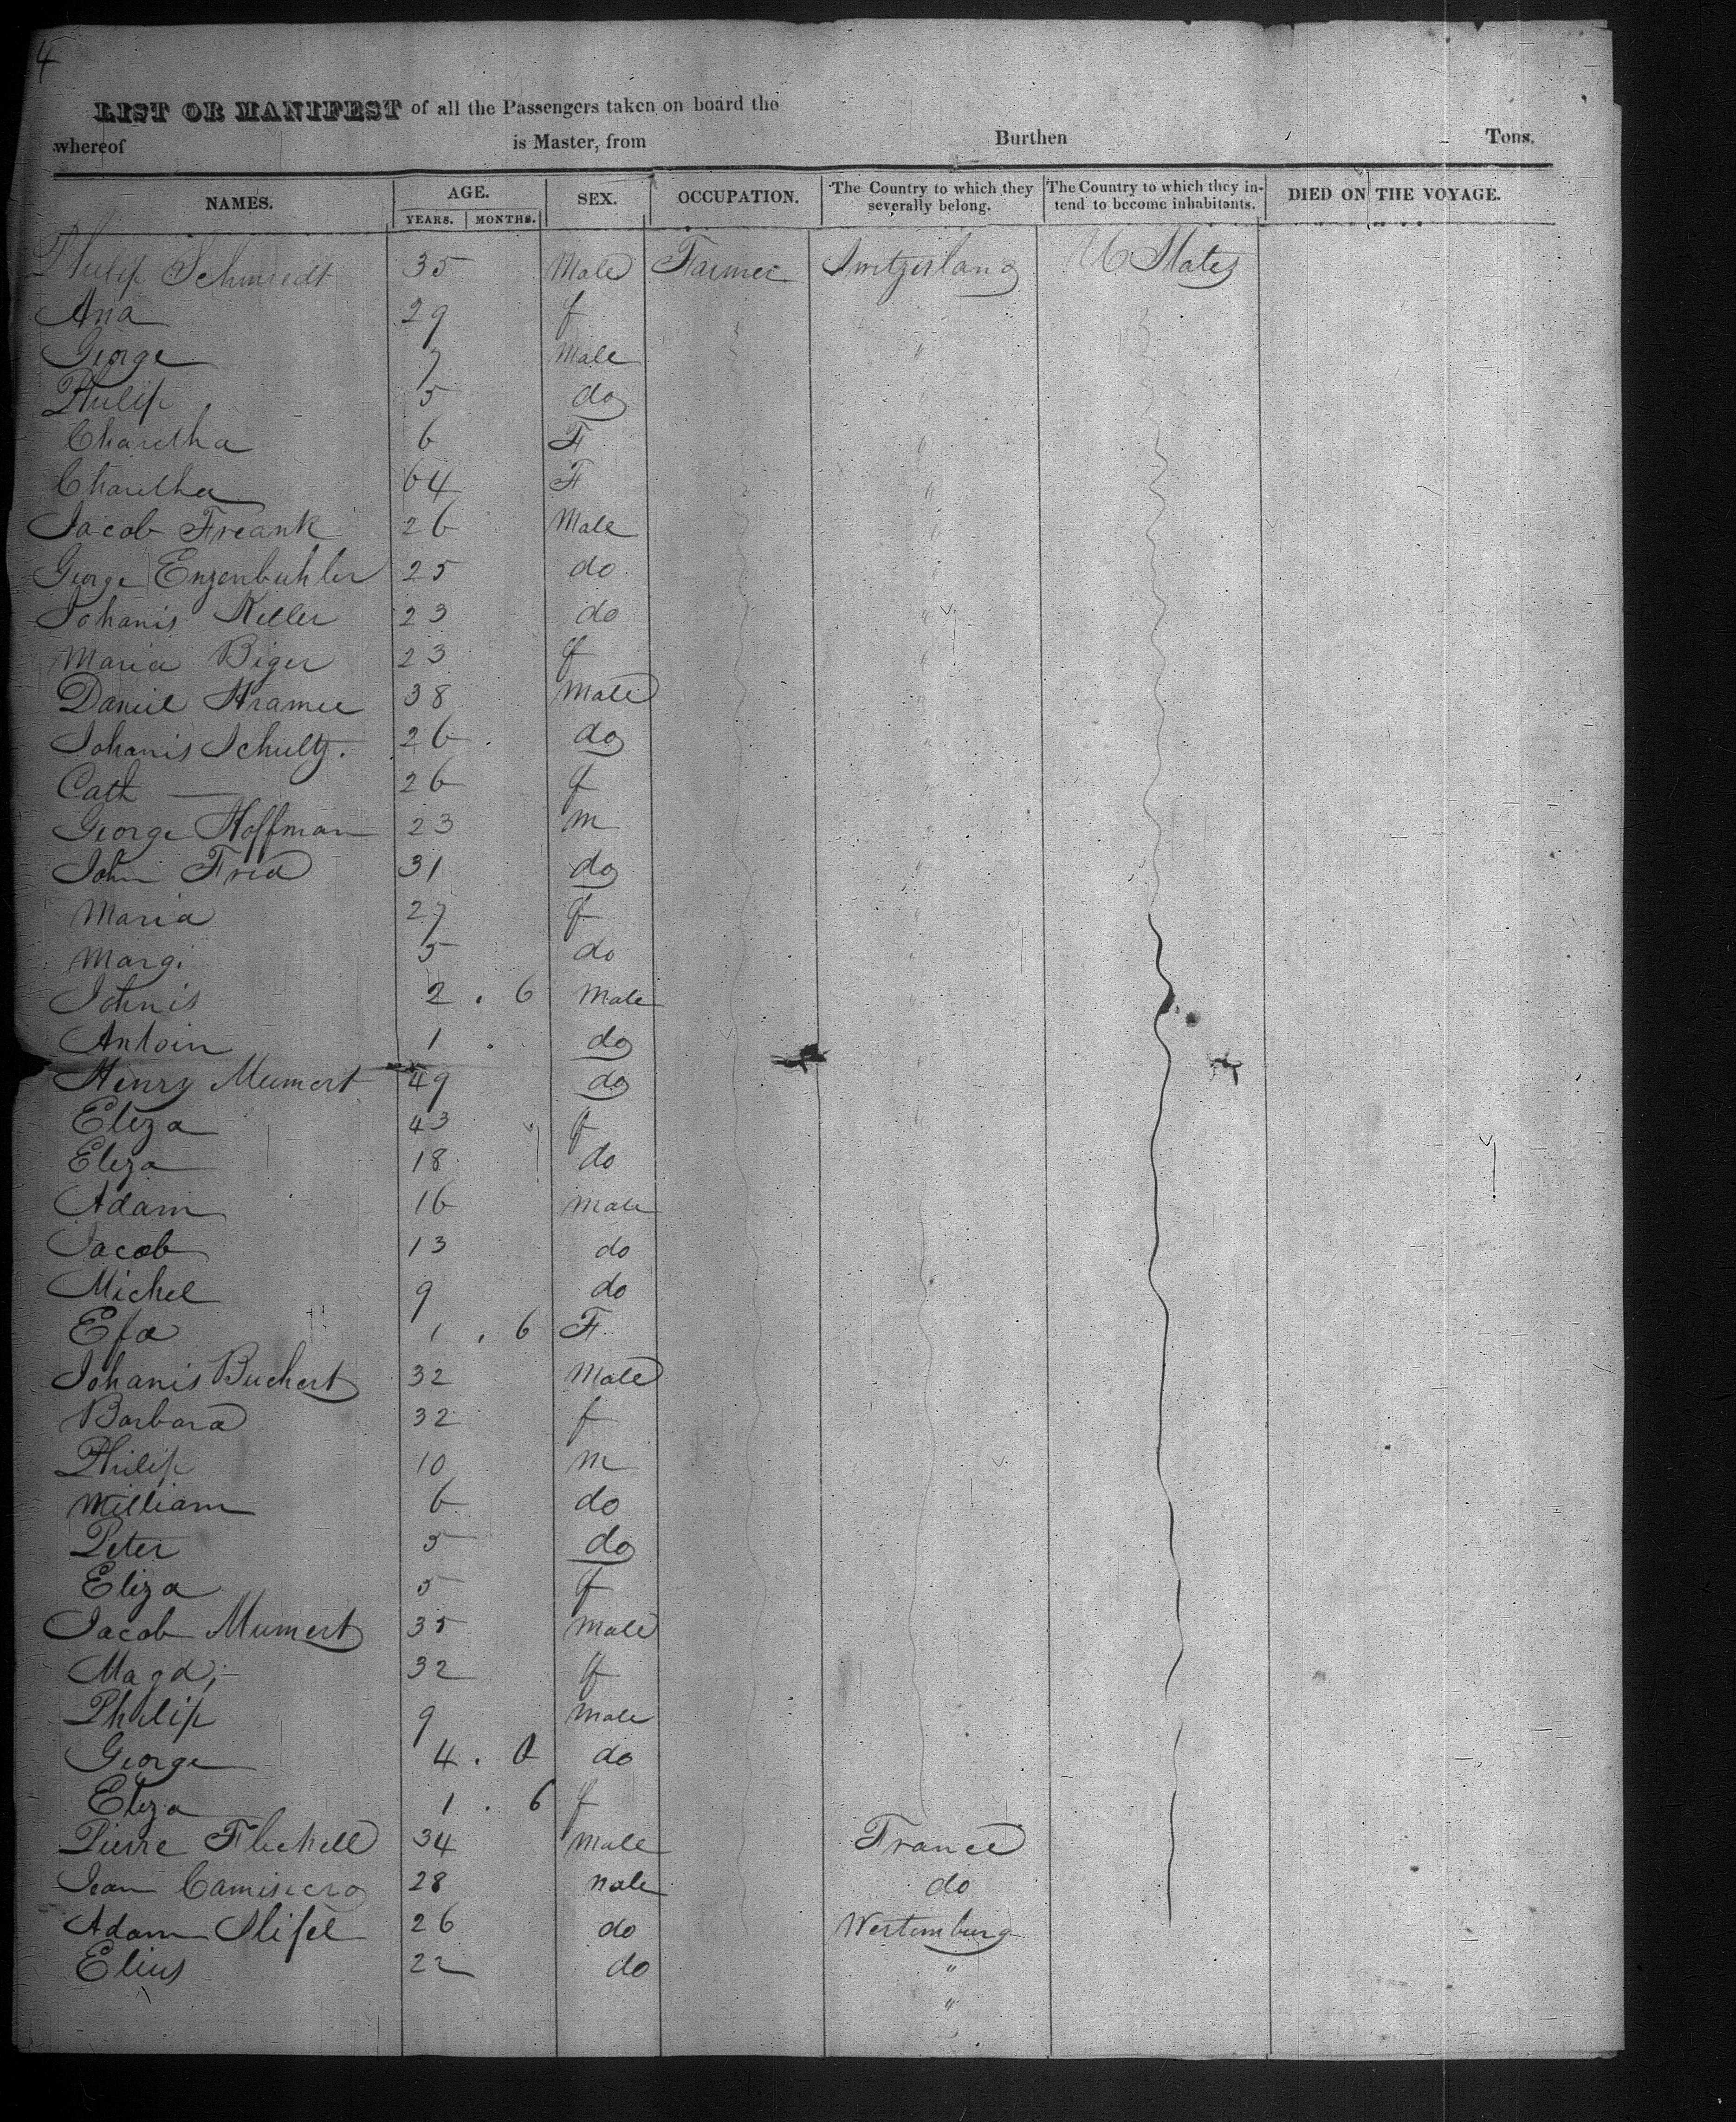 4
LIST OR MANIFEST of all the Passengers taken on board the
whereof is Master, from Burthen Tons.
NAMES. AGE. YEARS. MONTHS. SEX. OCCUPATION. The Country to which they severally belong. The Country to which they intend to become inhabitants. DIED ON THE VOYAGE.
Philip Schmiedt 35 Male Farmer Switzerland U States
Ana 29 f
George 7 Male "
Philip 5 do
Charetha 6 F "
Charetha 64 F "
Jacob Freank 26 Male "
George Enzenbuhler 25 do "
Johanis Keller 23 do "
Maria Biger 23 f "
Daniel Kramer 38 Male "
Johanis Schultz. 26 do "
Cath — 26 f "
George Hoffman 23 m "
John Fried 31 do "
Maria 27 f "
Margi 5 do "
Johnis 2 . 6 Male "
Antoin 1 . do
Henry Mumert 49 do "
Eliza 43 f "
Eliza 18 do
Adam 16 male
Jacob 13 do
Michel 9 do
Efa 1 . 6 F
Johanis Buchert 32 Male
Barbara 32 f
Philip 10 m
William 6 do
Peter 5 do
Eliza 5 f
Jacob Mumert 35 male
Magd;- 32 f
Philip 9 male
George 4 . 0 do
Eliza 1 . 6 f
Pierre Flechell 34 male France
Jean 28 male do
Adam Slifel 26 do Wertemburg
Elius 22 do "
"